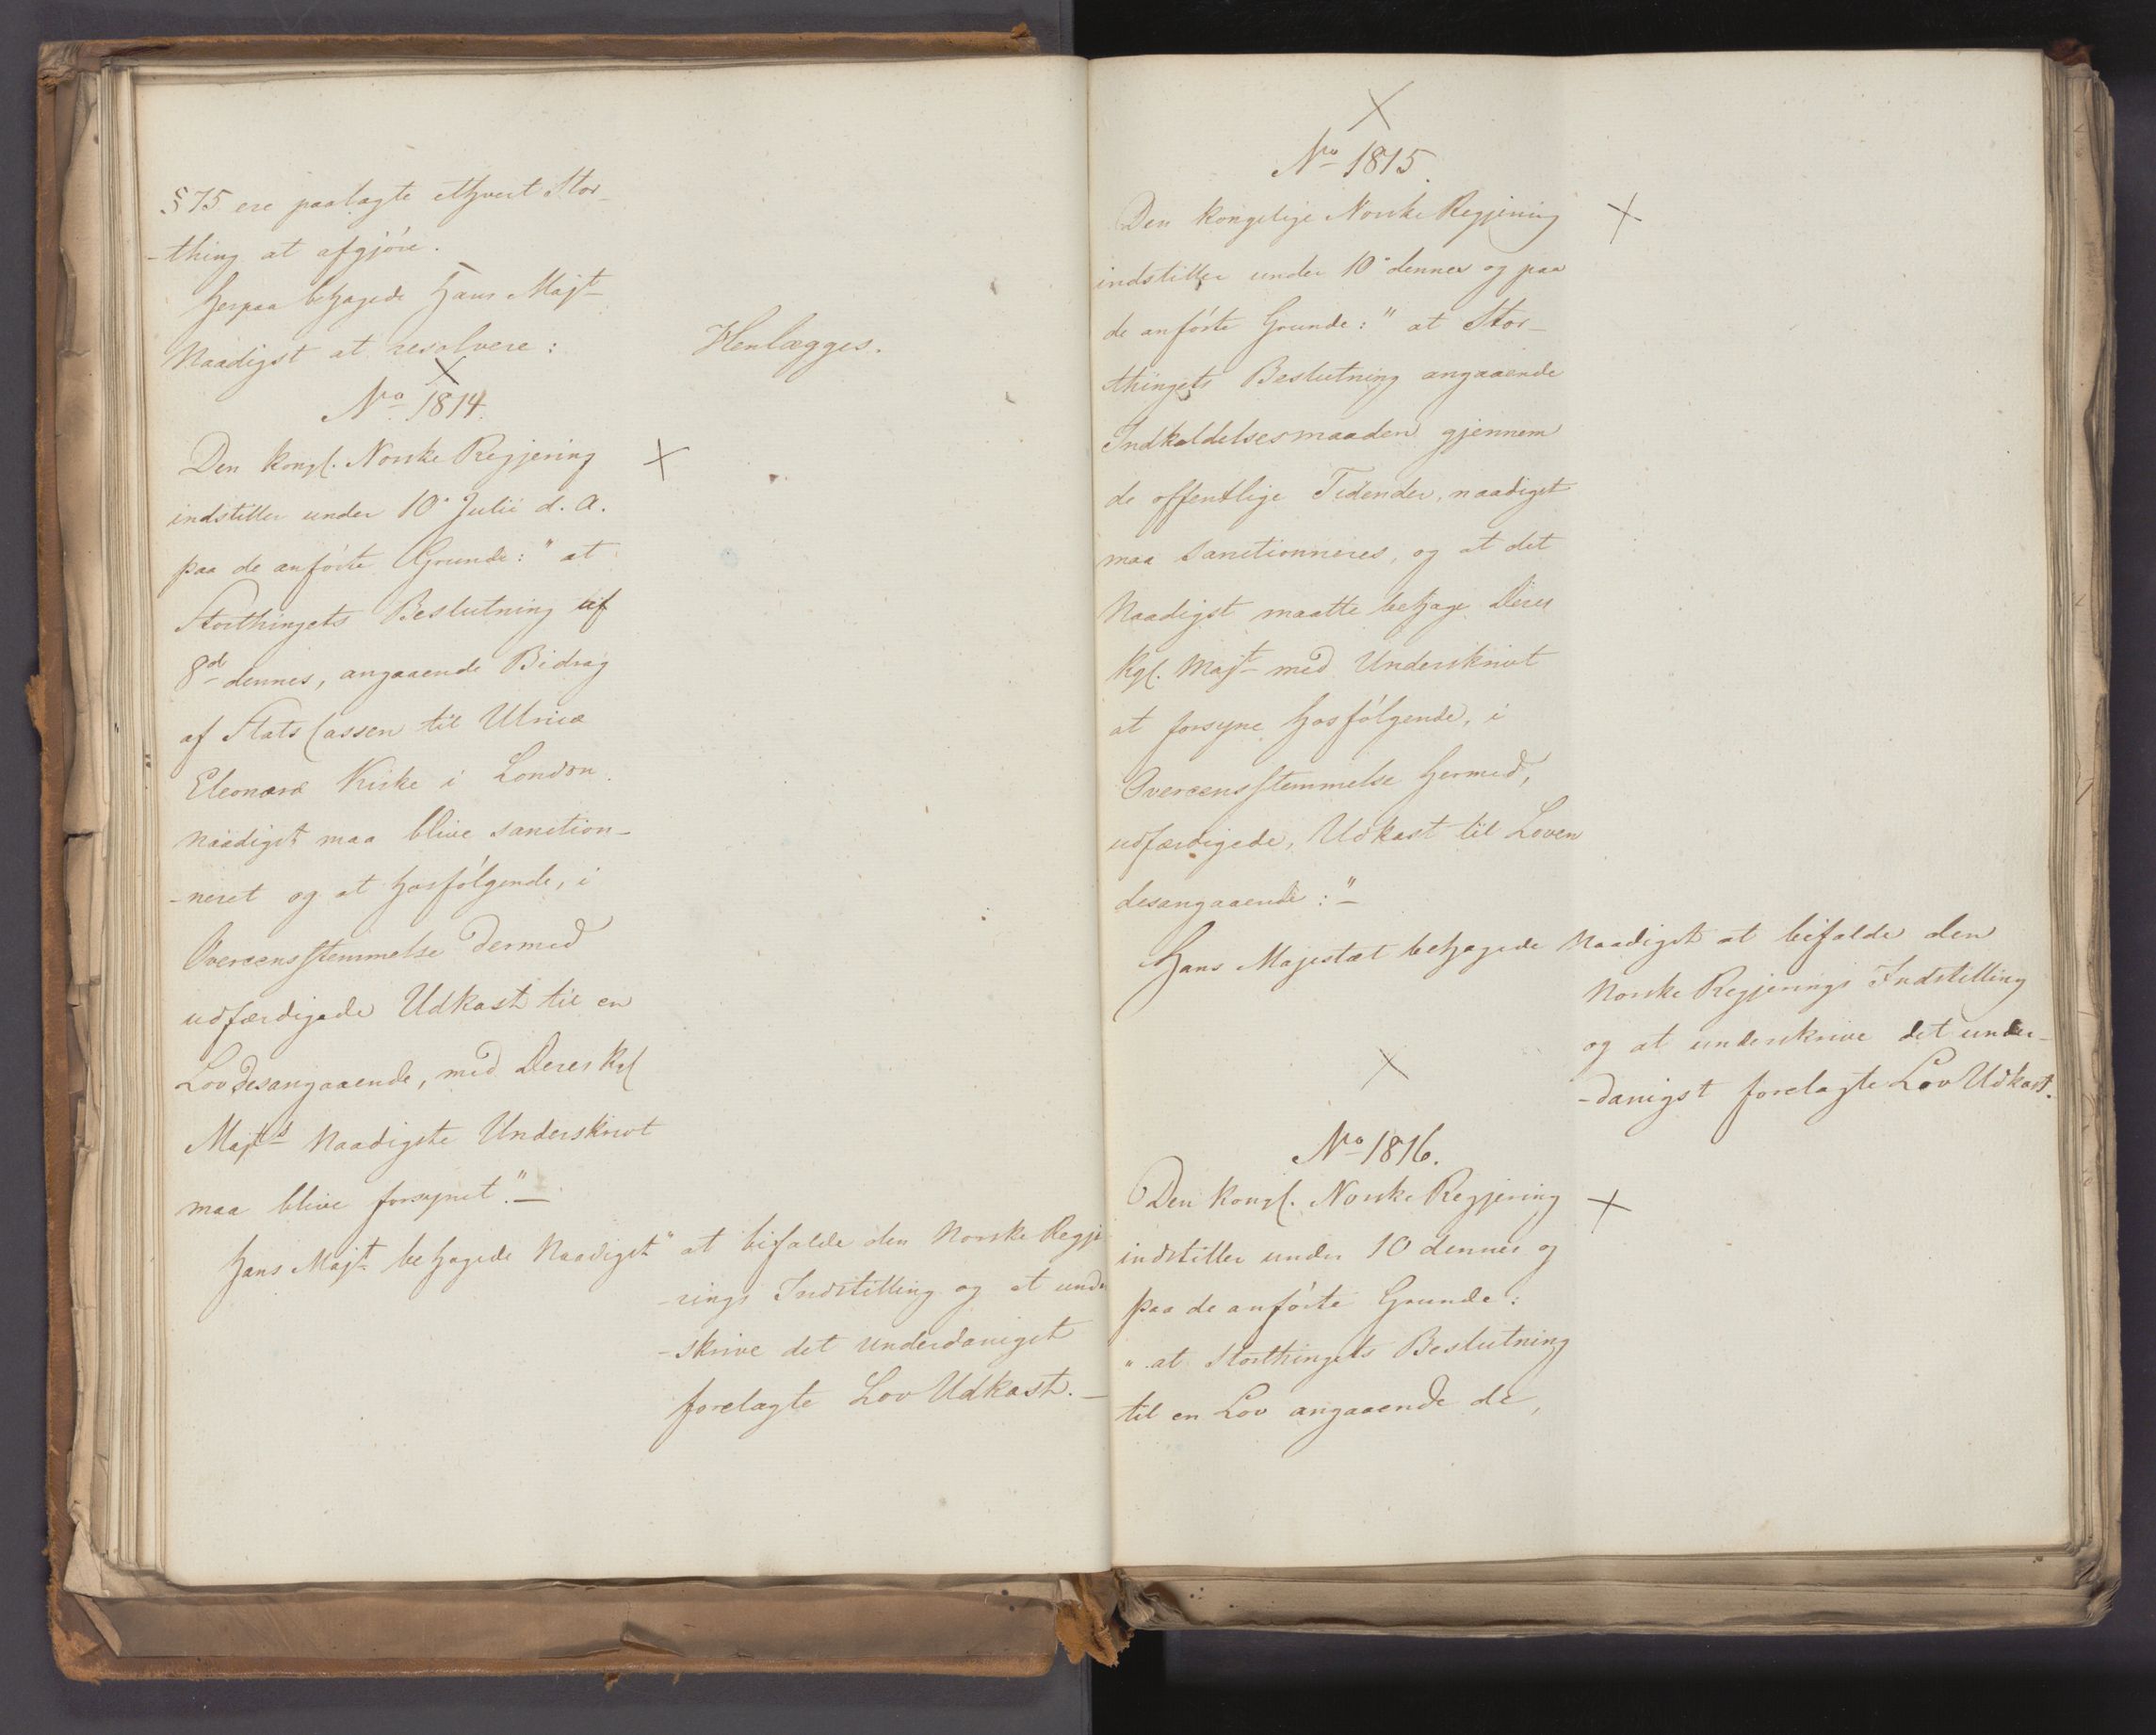 §75 ere paalagte ethvert Stor-
-thing at afgjöre.
Herpaa behagede Hans Majt
Naadigst at resolvere:
Henlægges.
X
No 1814.
Den kongl. Norske Regjering
X
indstiller under 10de Julii d. A.
paa de anförte Grunde: "at
Storthingets Beslutning af
8de dennes, angaaende Bidrag
af Stats Cassen til Ulrica
Eleonora Kirke i London
naadigst maa blive sanction-
-neret og at hosfölgende, i
Overeensstemmelse dermed
udfærdigede Udkast til en
Lov desangaaende, med Deres Kgl
Majts Naadigste Underskrivt
maa blive forsynet."-
Hans Majt behagede Naadigst "at bifalde den Norske Regje
-rings Indstilling og at under
-skrive det underdanigst
forelagte Lov Udkast.-
X
No 1815.
Den kongelige Norske Regjering
X
indstiller under 10de dennes og paa
de anförte Grunde: "at Stor-
thingets Beslutning angaaende
Indkaldelsesmaaden gjennem
de offentlige Tidender, naadigst
maa sanctionneres, og at det
Naadigst maatte behage Deres
Kgl. Majt med Underskrivt
at forsyne hosfölgende, i
Overeensstemmelse hermed,
udfærdigede, Udkast til Loven
desangaaende:"-
Hans Majestæt behagede Naadigst at bifalde den
Norske Regjerings Indstilling
og at underskrive det under-
-danigst forelagte Lov Udkast.
X
No 1816.
Den kongl. Norske Regjering
X
indstiller under 10 dennes og
paa de anförte Grunde:
"at Storthingets Beslutning
til en Lov angaaende de,